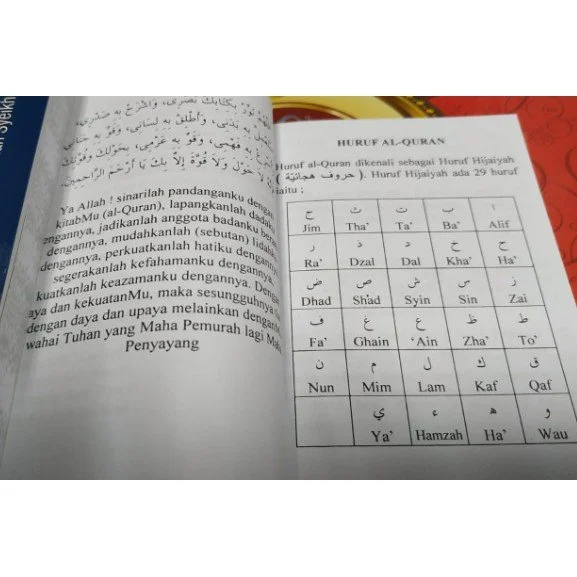 Syeikh
نَوِّرْ بِكِتَابِكَ بَصَرِي، وَاشْرَحْ بِهِ صَدْرِي،
بِهِ بَدَنِي، وَأَطْلِقْ بِهِ لِسَانِي، وَقَوِّ بِهِ جَنَانِي
بِهِ فَهْمِي، وَقَوِّ بِهِ عَزْمِي، بِحَوْلِكَ وَقُوَّتِكَ
لَا حَوْلَ وَلَا قُوَّةَ إِلَّا بِكَ يَا أَرْحَمَ الرَّاحِمِينَ.
Ya Allah ! sinarilah pandanganku dengan
kitabMu (al-Quran), lapangkanlah dadaku
dengannya, jadikanlah anggota badanku
dengannya, mudahkanlah (sebutan)
dengannya, perkuatkanlah hatiku dengannya,
segerakanlah kefahamanku dengannya,
kuatkanlah keazamanku dengannya.
daya dan kekuatanMu, maka sesungguhnya
dengan daya dan upaya melainkan
wahai Tuhan yang Maha Pemurah lagi
Penyayang
HURUF AL-QURAN
Huruf al-Quran dikenali sebagai Huruf Hijaiyah
( حروف هجائيّة ). Huruf Hijaiyah ada 29 huruf
iaitu ;
ا ب ت ث ج
Jim Tha' Ta' Ba' Alif
ح خ د ذ ر
Ra' Dzal Dal Kha' Ha'
ز س ش ص ض
Dhad Shad Syin Sin Zai
ط ظ ع غ ف
Fa' Ghain 'Ain Zha' To'
ق ك ل م ن
Nun Mim Lam Kaf Qaf
و ه ء ي
Ya' Hamzah Ha' Wau